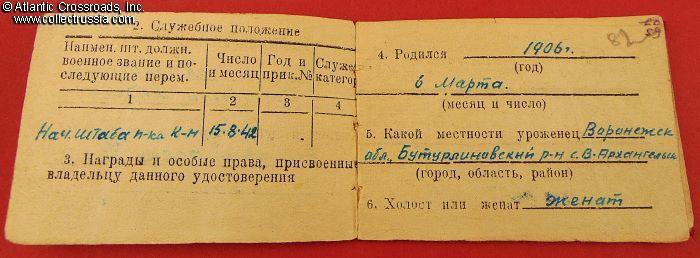 © Atlantic Crossroads, Inc.,
www.collectrussia.com
2. Служебное положение
Наимен. шт. должн. военное звание и последующие перем. Число и месяц Год и прик.№ Служе категор
1 2 3 4
Нач. штаба п-ка К-н 15.8.42
3. Награды и особые права, присвоенны
владельцу данного удостоверения
4. Родился 1906г.
(год)
6 Марта.
(месяц и число)
5. Какой местности уроженец Воронежск
обл. Бутурлиновский р-н с. В-Архангельск
(город, область, район)
6. Холост или женат женат